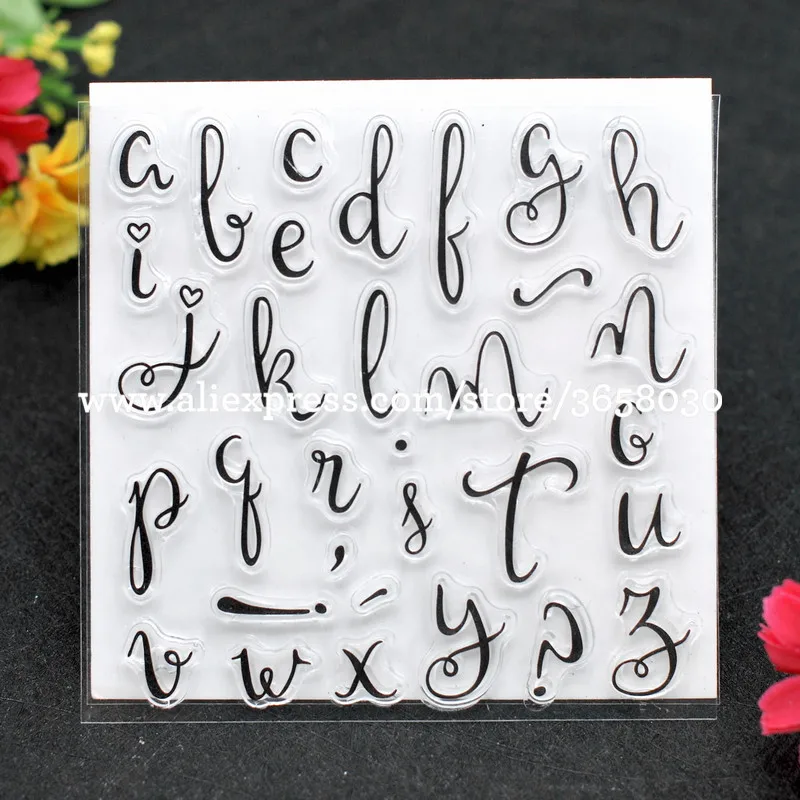 a b c d f g h
i e ~
j k l m n
www.aliexpress.com/store/3658030
o
p q r . s t u
, ! -
v w x y ? z